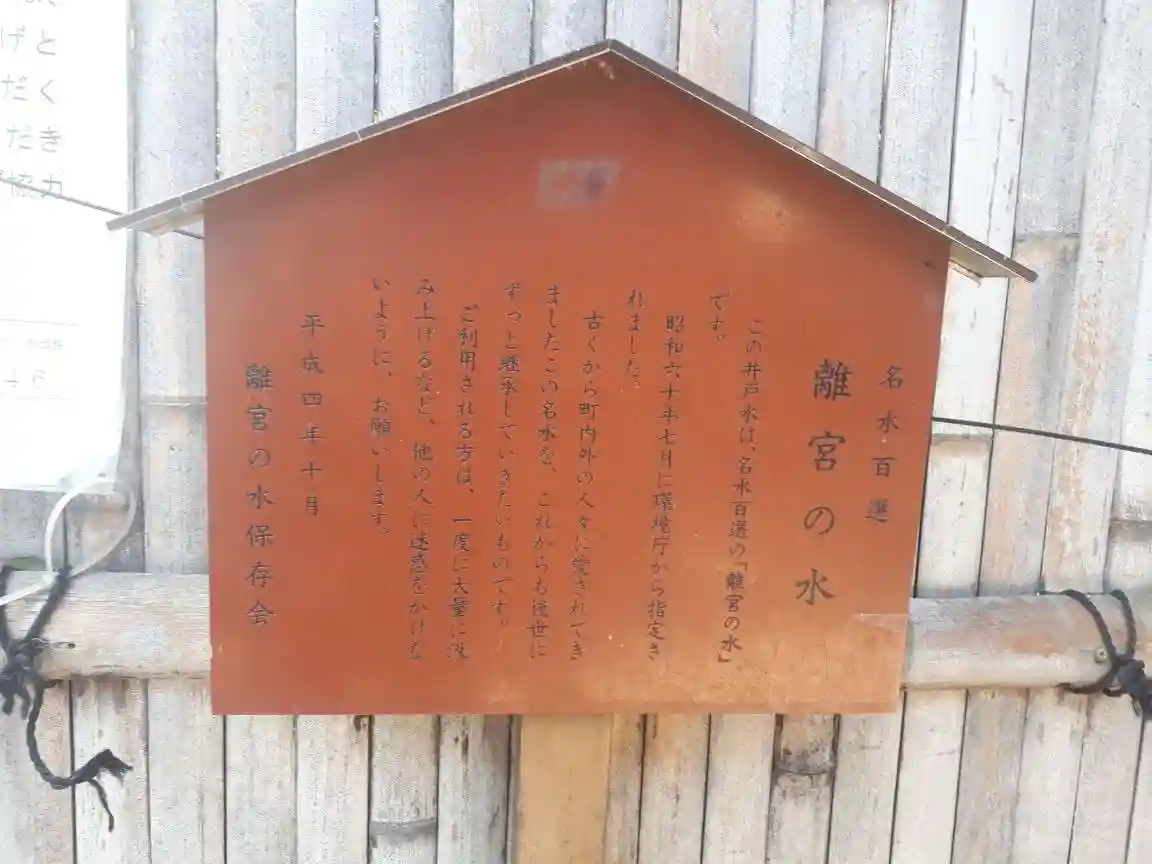 名水百選
離宮の水
この井戸水は、名水百選の「離宮の水」
です。
昭和六十年七月に環境庁から指定さ
れました。
古くから町内外の人々に愛されてき
ましたこの名水を、これからも後世に
ずっと継承していきたいものです。
ご利用される方は、一度に大量に汲
み上げるなど、他の人に迷惑をかけな
いように、お願いします。
平成四年十月
離宮の水保存会
とくきカ
げだだ協
46